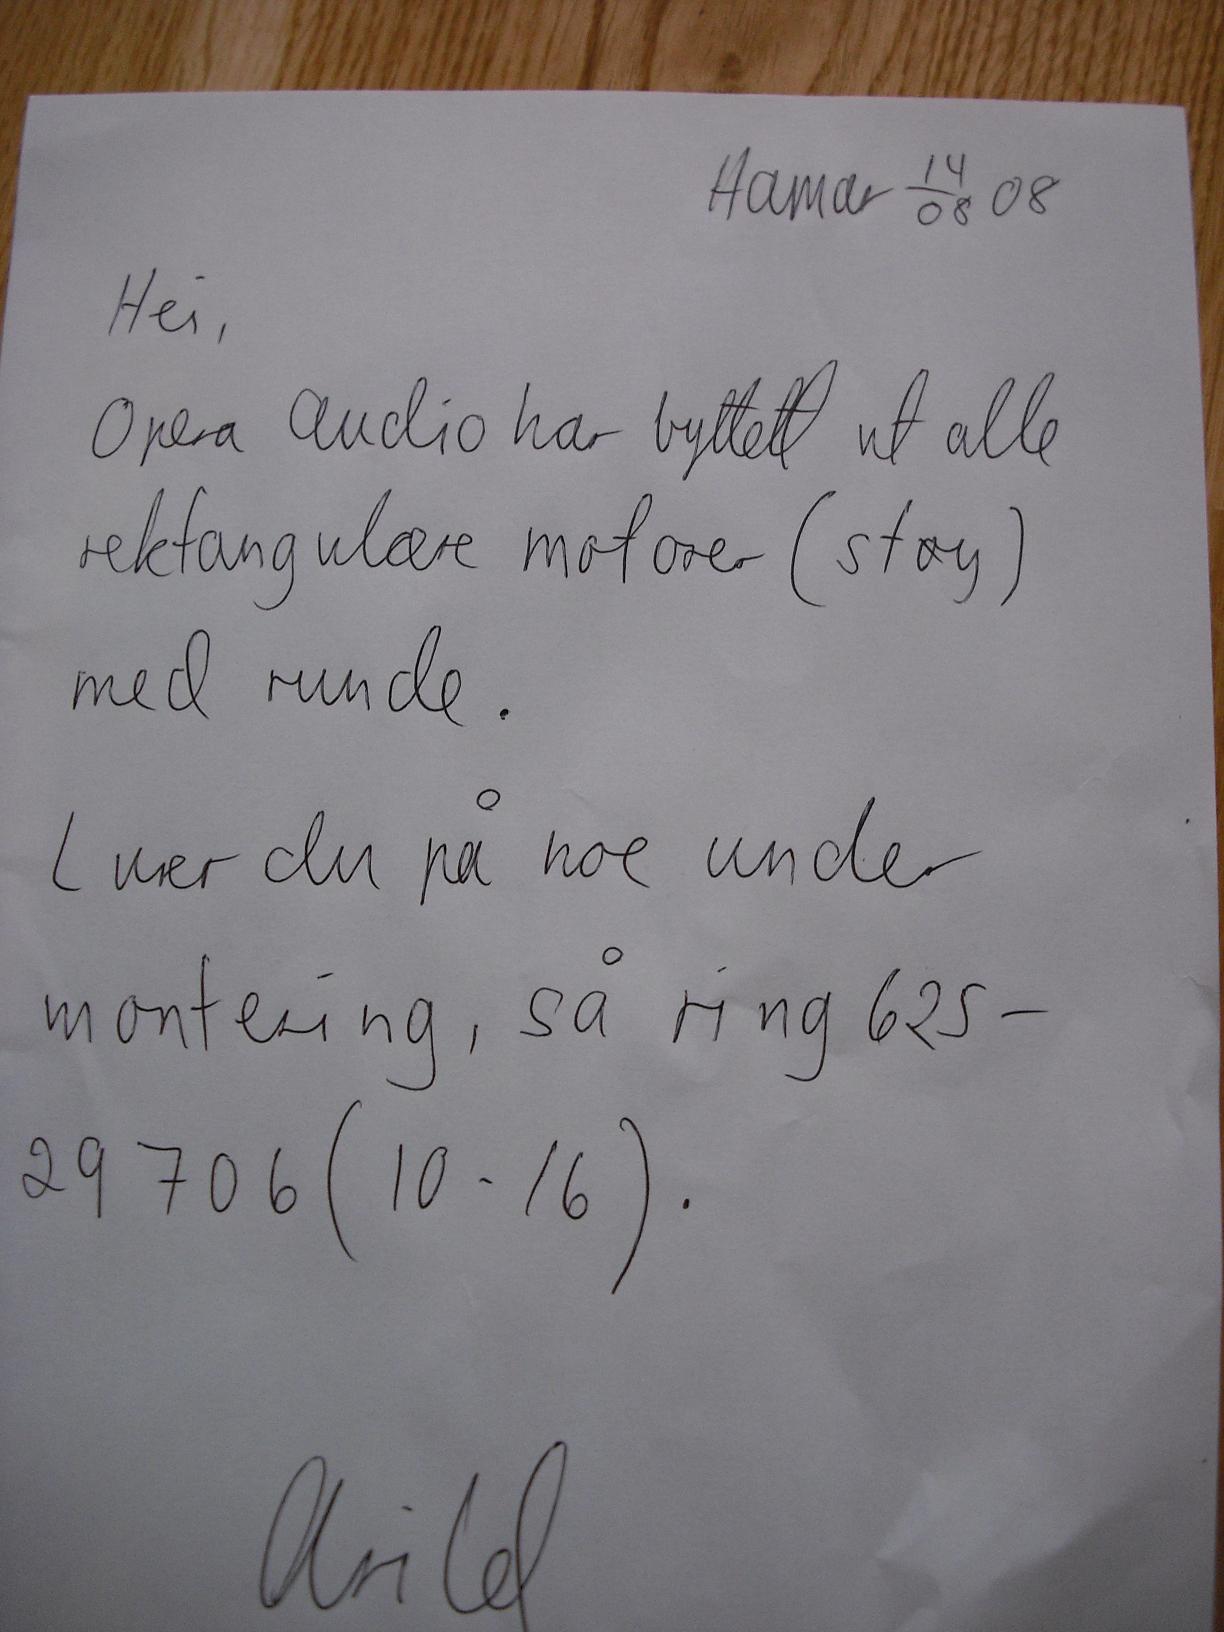 Hamar 14/08 08
Hei,
Opera Audio har byttet ut alle
rektangulære motorer (støy)
med runde.
Lurer du på noe under
montering, så ring 625-
29 706 (10-16).
Arild